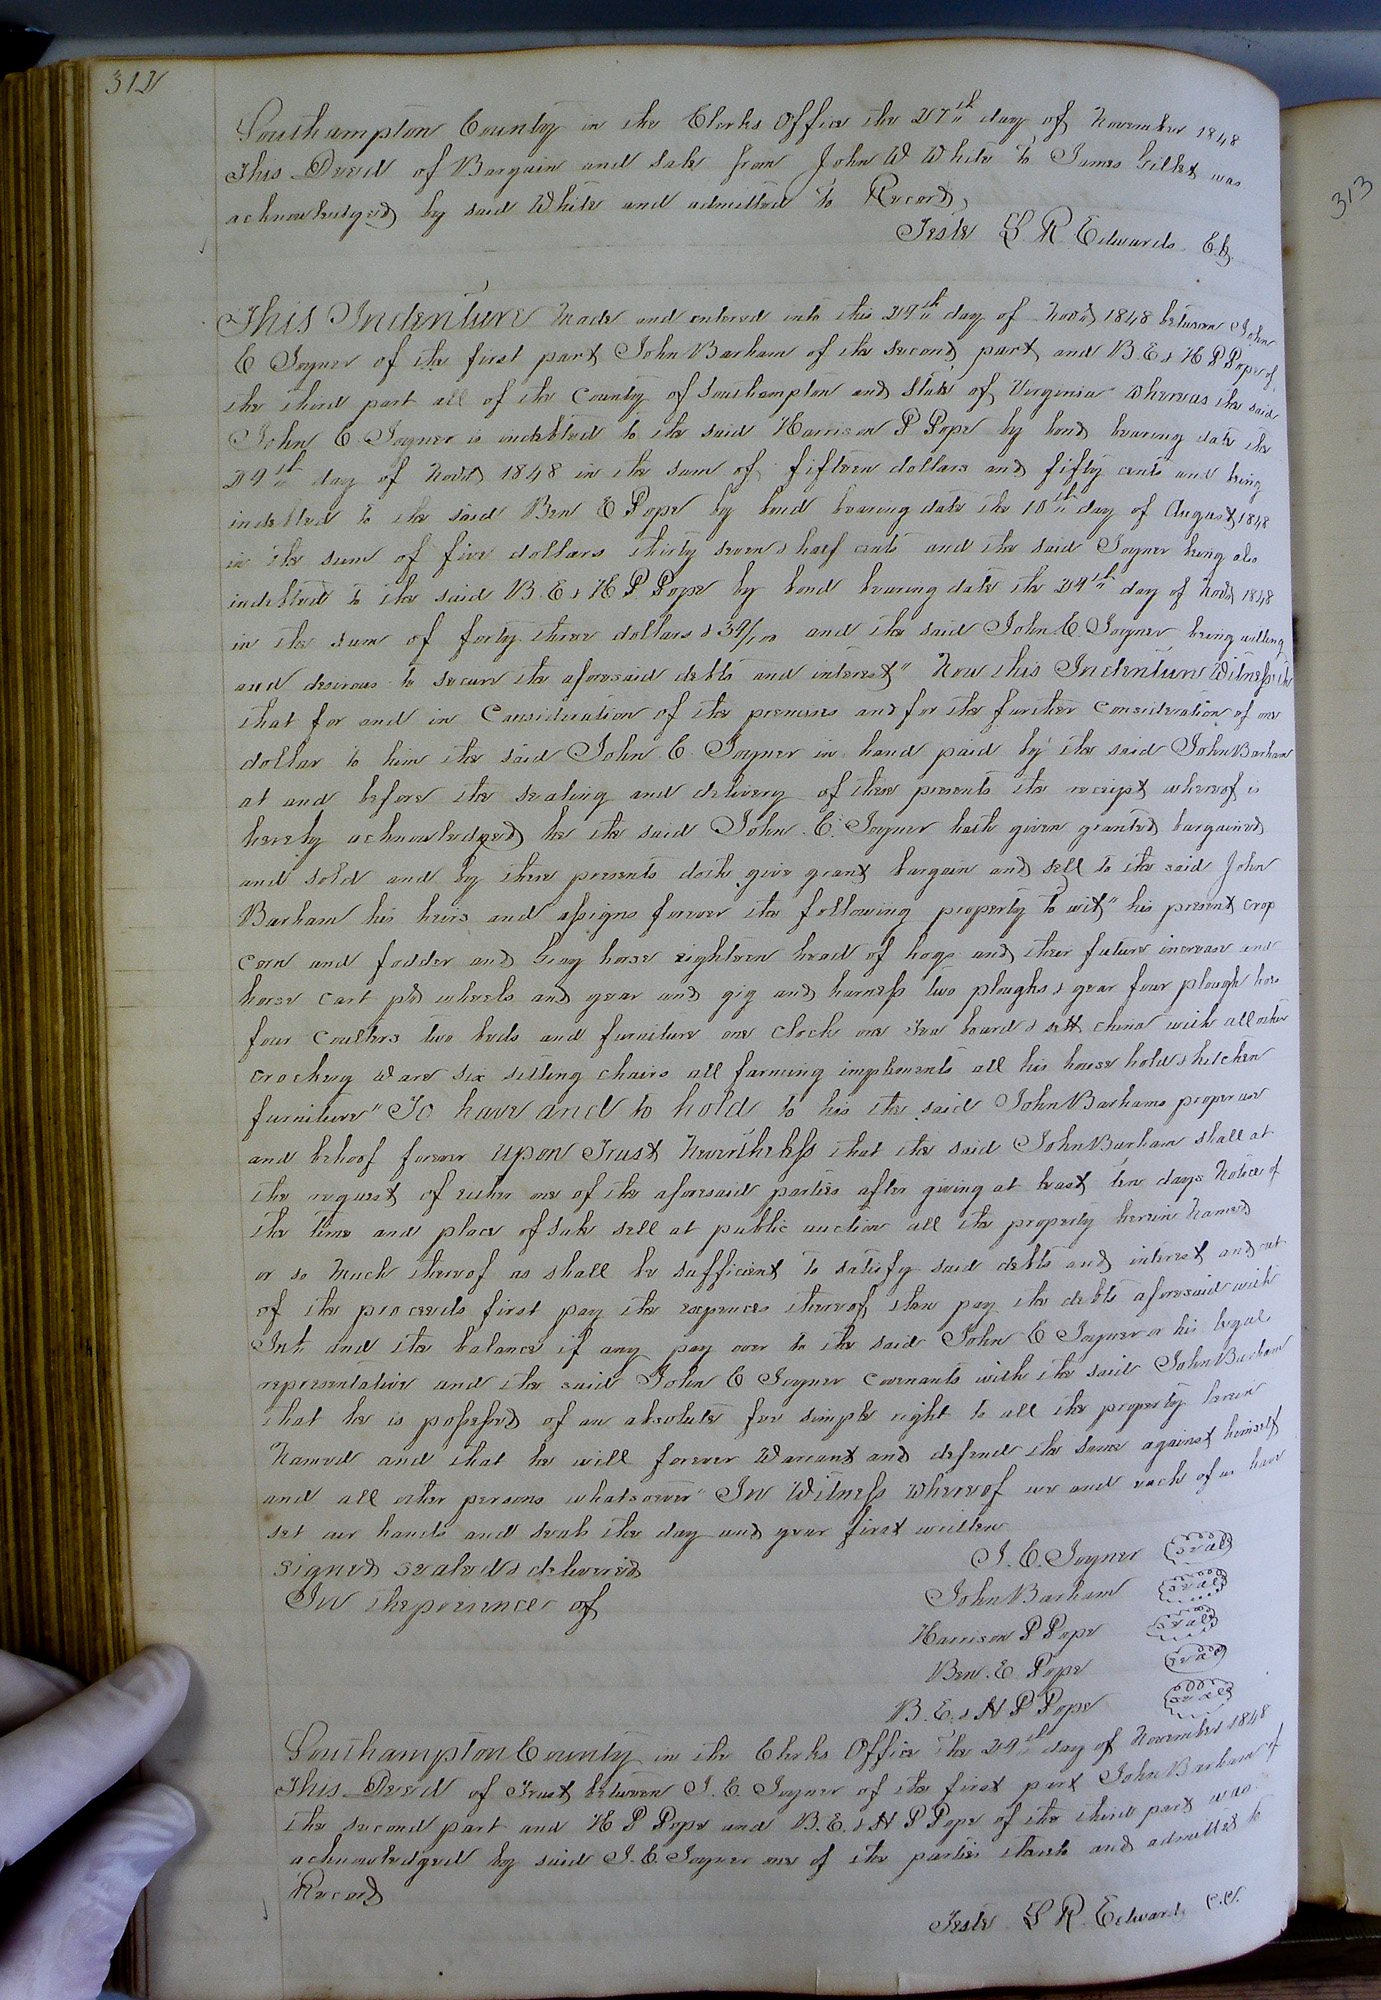 312
313
Southampton County in the Clerks Office the 27th day of November 1848
This Deed of Bargain and Sale from John W White to James Gillet was
acknowledged by said White and admitted to Record,
Teste L R Edwards C.C.
This Indenture Made and entered into this 29th day of Novr 1848 between John
E Joyner of the first part John Barham of the second part and B. E & H P Pope of
the third part all of the County of Southampton and State of Virginia Whereas the said
John E Joyner is indebted to the said Harrison P Pope by bond bearing date the
29th day of Novr 1848 in the sum of fifteen dollars and fifty cents and being
indebted to the said Ben E Pope by bond bearing date the 10th day of August 1848
in the sum of five dollars thirty seven & half cents and the said Joyner being also
indebted to the said B. E & H P. Pope by bond bearing date the 29th day of Novr 1848
in the sum of forty three dollars & 39/100 and the said John E. Joyner being willing
and desirous to secure the aforesaid debts and interest" Now this Indenture Witnesseth
that for and in Consideration of the premises and for the further Consideration of one
dollar to him the said John E. Joyner in hand paid by the said John Barham
at and before the sealing and delivery of these presents the receipt whereof is
hereby acknowledged he the said John E. Joyner hath given granted bargained
and sold and by these presents doth give grant bargain and sell to the said John
Barham his heirs and assigns forever the following property to wit" his present crop
corn and fodder and hay horse eighteen head of hogs and their future increase and
horse cart pr wheels and gear and gig and harness two ploughs & gear four plough hoes
four Coulters two beds and furniture one Clock one Tea board & sett china with all other
Crockery Ware six sitting chairs all farming implements all his house hold & kitchen
furniture" To have and to hold to his the said John Barhams proper use
and behoof forever upon Trust Nevertheless that the said John Barham shall at
the request of either one of the aforesaid parties after giving at least ten days Notice of
the time and place of Sale sell at public auction all the property herein Named
or so Much thereof as shall be sufficient to satisfy said debts and interest and out
of the proceeds first pay the expences thereof, then pay the debts aforesaid with
Int. and the balance if any pay over to the said John E Joyner or his legal
representative and the said John E Joyner Covenants with the said John Barham
that he is possessed of an absolute fee simple right to all the property herein
Named and that he will forever Warrant and defend the same against himself
and all other persons whatsoever" In Witness Whereof we and each of us have
set our hands and seals the day and year first written
signed sealed & delivered
In the presence of
J. E. Joyner Seal
John Barham Seal
Harrison P Pope Seal
Ben. E Pope Seal
B. E. & H P Pope Seal
Southampton County in the Clerks Office the 29th day of November 1848
This Deed of Trust between J. E. Joyner of the first part John Barham of
the second part and H P Pope and B. E. & H P Pope of the third part was
acknowledged by said J. E. Joyner one of the parties thereto and admitted to
Record
Teste L R. Edwards C.C.